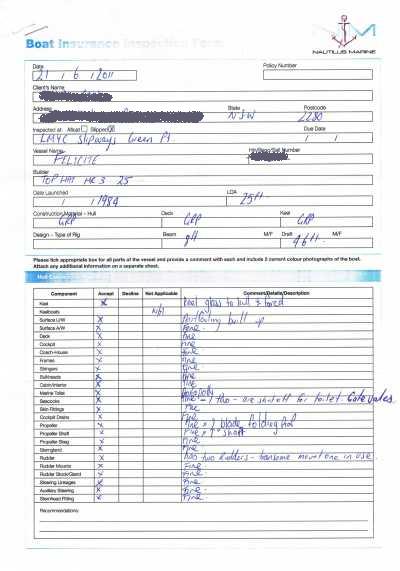 Boat Insurance Inspection Form
NAUTILUS MARINE
Date
Policy Number
21 / 6 / 2011
Client's Name
Address State Postcode
NSW 2280
Inspected at: Afloat Slipped Due Date
LMYC Slipways Green Pt / /
Vessel Name
FELICITE
Builder
TOP HAT MK 3 25
Date Launched LOA
/ / 1984 25ft
Construction Material - Hull Deck Keel
GRP GRP GRP
Design - Type of Rig Beam M/F Draft M/F
8ft
Please tick appropriate box for all parts of the vessel and provide a comment with each and include 3 current colour photographs of the boat.
Attach any additional information on a separate sheet.
Component Accept Decline Not Applicable Comment/Details/Description
Keel x glass to hull & faired
Keelboats N/A
Surface U/W x Antifouling built up
Surface A/W x Fine
Deck x Fine
Cockpit x Fine
Coach-House x Fine
Frames x Fine
Stringers x Fine
Bulkheads x Fine
Cabin/Interior x Fine
Marine Toilet x
Seacocks x Fine - are shut off for toilet. Gate valves
Skin Fittings x Fine
Cockpit Drains x Fine
Propeller x Fine x 2 blade folding
Propeller Shaft x Fine x 1" shaft
Propeller Strag x Fine
Sterngland x Fine
Rudder x has two rudders - transome mount one in use.
Rudder Mounts x Fine
Rudder Stock/Gland x Fine
Steering Lineages x Fine
Auxiliary Steering x Fine
Stemhead Fitting x Fine
Recommendations: